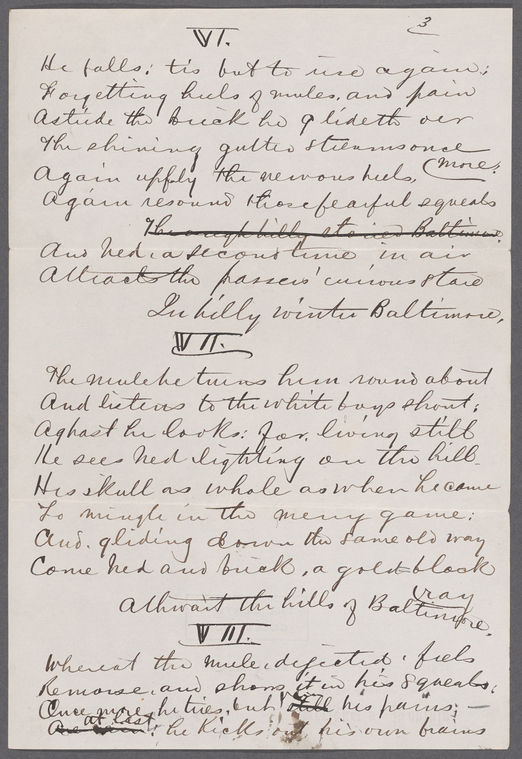 3
VI.
He falls; tis but to rise again;
Forgetting heels of mules, and pain
Astride the brick he glideth oer
The shining gutter streams once
more:
Again upfly the nervous heels,
Again resound those fearful squeals
Through hilly storied Baltimore.
And Ned, a second time in air
Attracts the passers' curious stare
In hilly winter Baltimore,
VII.
The mule he turns him round about
And listens to the white boys shout;
Aghast he looks: for, living still
He sees Ned lighting on the hill.
His skull as whole as when he came
To mingle in the merry game:
And, gliding down the same old way
Come Ned and brick, a gold-black
ray
Athwart the hills of Baltimore.
VIII.
Whereat the mule, dejected, feels
Remorse, and shows it in his squeals;
Once more he tries, but still his pains; —
at last,
he kicks out his own brains